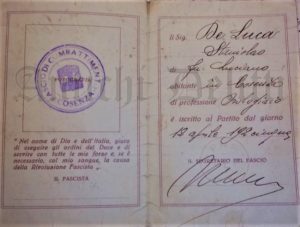 FASCIO DI COMBATTIMENTO
COSENZA
"Nel nome di Dio e dell'Italia, giuro
di eseguire gli ordini del Duce e di
servire con tutte le mie forze e, se è
necessario, col mio sangue, la causa
della Rivoluzione Fascista"
IL FASCISTA
Il Sig. De Luca
Stanislao
di fu Luciano
abitante in Cosenza
di professione
è iscritto al Partito dal giorno
12 aprile
IL SEGRETARIO DEL FASCIO